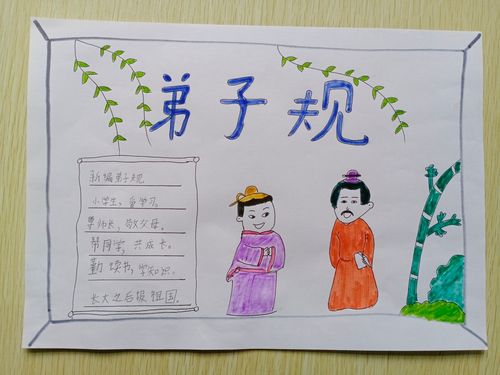 弟子规
新编弟子规
小学生，爱学习。
尊师长，敬父母。
帮同学，共成长。
勤读书，学知识。
长大之后报祖国。